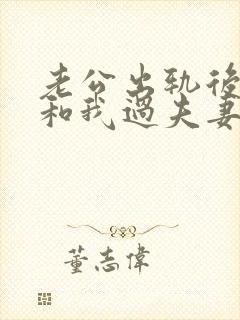 老公出轨後
和我過夫妻
董志偉